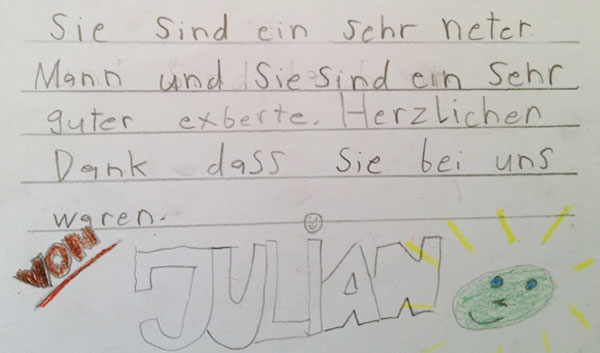 Sie sind ein sehr neter
Mann und Sie sind ein Sehr
guter exberte. Herzlichen
Dank dass Sie bei uns
waren.
VON
JULIAN